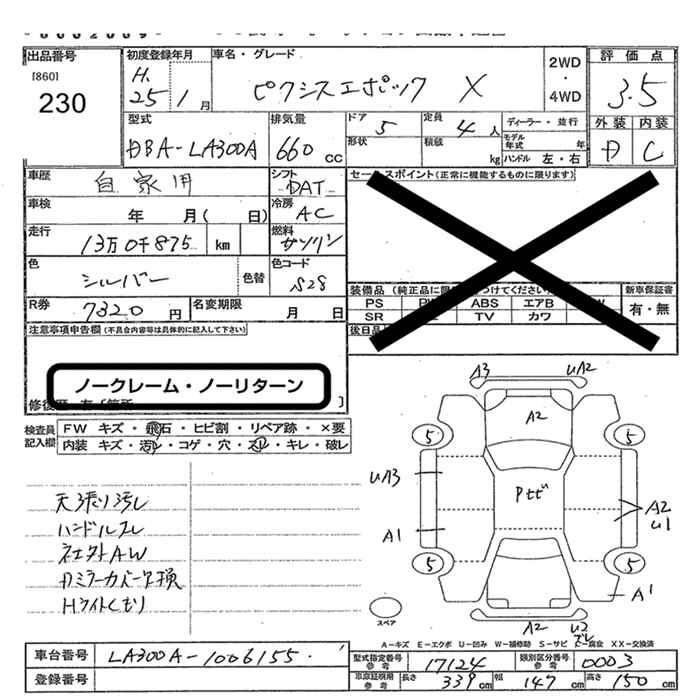 出品番号
[860]
230
初度登録年月
H.
25年1月
車名・グレード
ピクシスエポック X
2WD
・
4WD
評価点
3.5
外装 内装
D C
型式
DBA-LA300A
排気量
660 cc
ドア 5
形状
定員 4 人
積載 kg
ディーラー・並行
モデル年式 年
ハンドル 左・右
車歴
自家用
シフト
DAT
車検
年 月( 日)
冷房
AC
走行
13万0千875 km
燃料
ガソリン
色
シルバー
色替
色コード
S28
R券
7320 円
名変期限
月 日
セールスポイント(正常に機能するものに限ります)
装備品
PS ABS エアB
SR TV カワ
後日品
新車保証書
有・無
注意事項申告欄(不具合内容等は具体的に記入して下さい)
ノークレーム・ノーリターン
検査員記入欄
FW キズ・飛石・ヒビ割・リペア跡・×要
内装 キズ・汚レ・コゲ・穴・スレ・キレ・破レ
天張り汚レ
ハンドルスレ
社外AW
Dミラーカバー交換
Hライトくもり
A3 UA2
A2
5 5
UA3
Pセビ
A2
U1
A1
5 5
A1
A2 U2
スレ
スペア
A-キズ E-エクボ U-凹み W-補修跡 S-サビ C-腐食 XX-交換済
車台番号
LA300A-1006155
登録番号
型式指定番号
参考
17124
類別区分番号
参考
0003
車庫証明用
参考
長さ 339 cm
幅 147 cm
高さ 150 cm